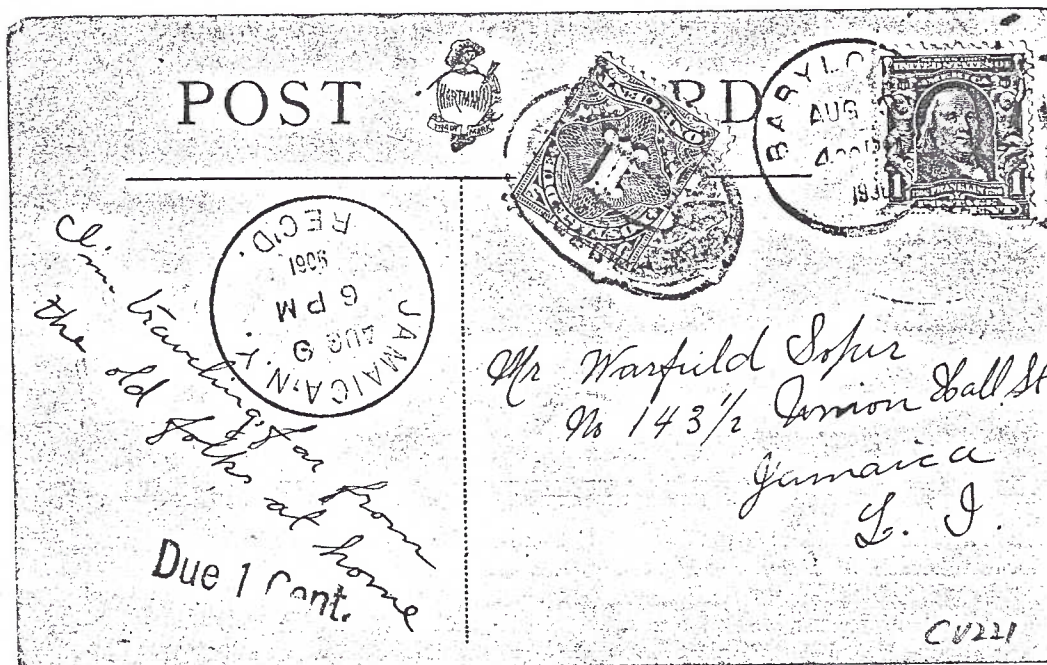 POST
HARTMAN
TRADE MARK
BABYLO
AUG
1
1
JAMAICA, N.Y.
AUG 9
6 PM
REC'D.
I'm traveling far from
the old folks at home
Due 1 Cent.
Mr Warfield Soper
No 143½ Union Hall St
Jamaica
L. I.
CV221